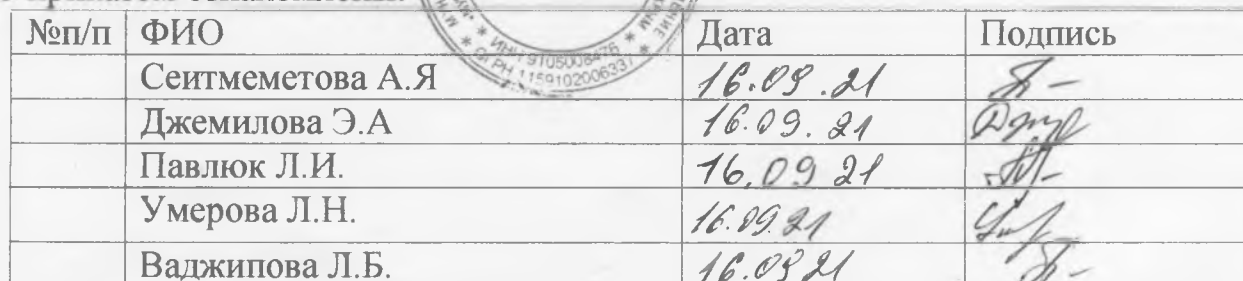 №п/п ФИО Дата Подпись
Сеитмеметова А.Я 16.09.21
Джемилова Э.А 16.09.21
Павлюк Л.И. 16.09 21
Умерова Л.Н. 16.09.21
Ваджипова Л.Б. 16.09 21
ИНН 9105008476 *
ОГРН 1159102006337 *